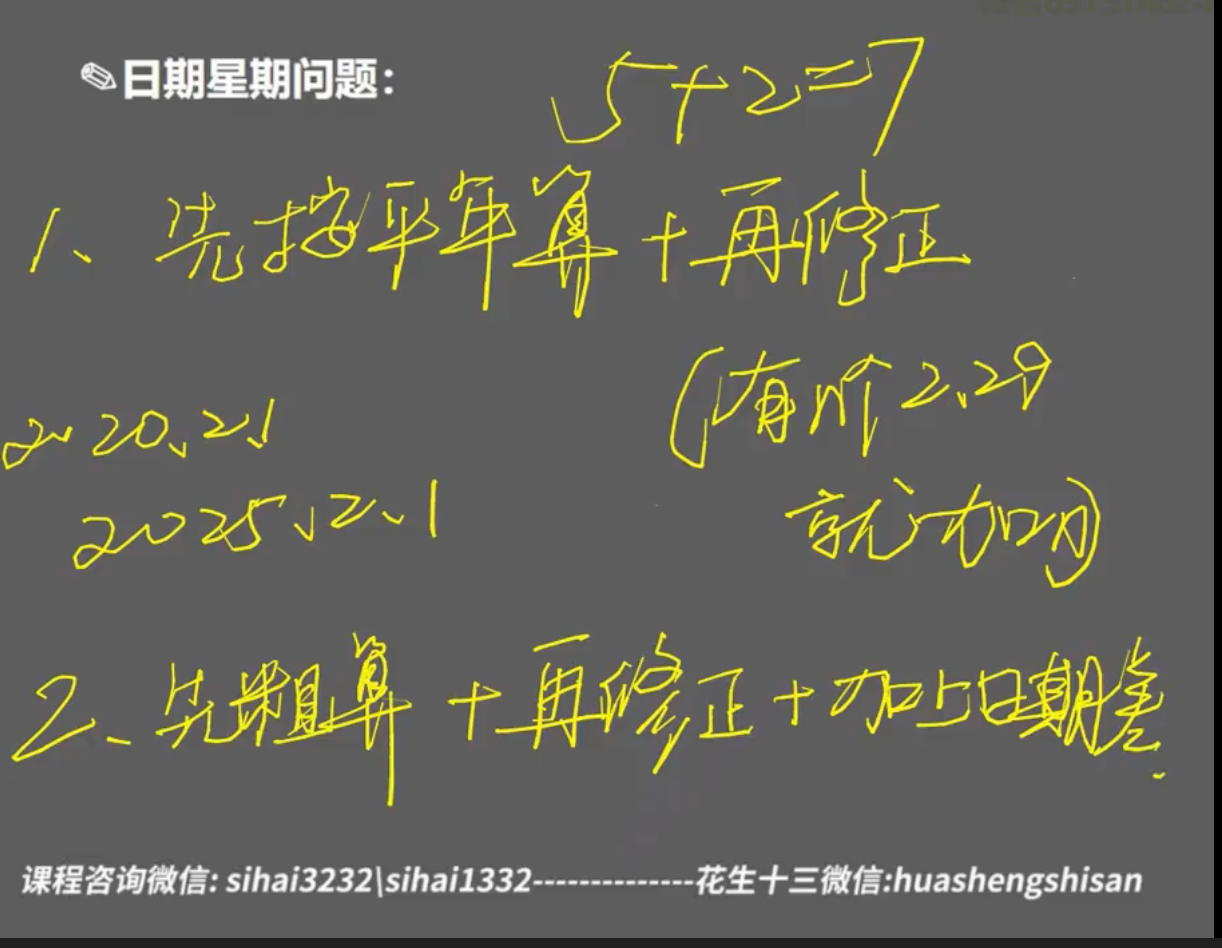 日期星期问题:
5+2=7
1、先按平年算+再修正
(有个2.29
就加1)
2020.2.1
2025.2.1
2、先粗算+再修正+加上日期差.
课程咨询微信: sihai3232\sihai1332--------------花生十三微信:huashengshisan